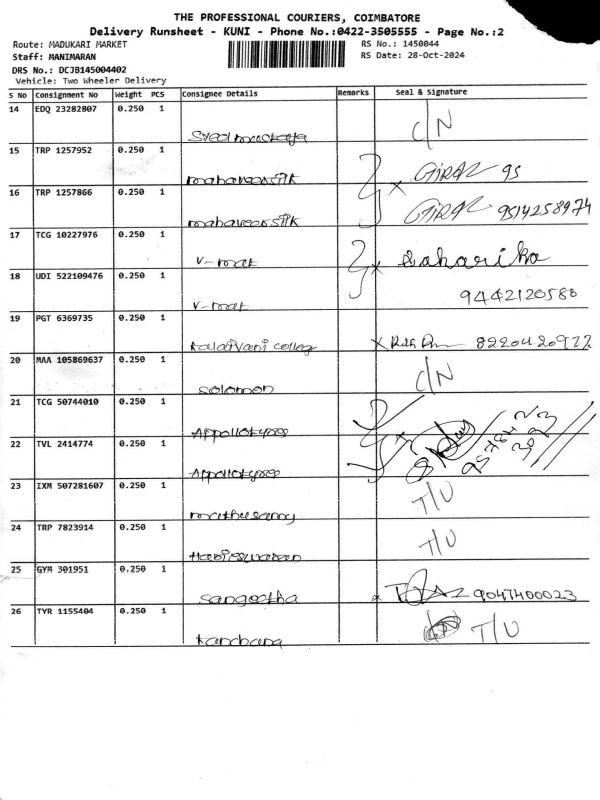 THE PROFESSIONAL COURIERS, COIMBATORE
Delivery Runsheet - KUNI - Phone No.:0422-3505555 - Page No.:2
Route: MADUKARI MARKET RS No.: 1450044
Staff: MANIMARAN RS Date: 28-Oct-2024
DRS No.: DCJB145004402
Vehicle: Two Wheeler Delivery
S No Consignment No Weight PCS Consignee Details Remarks Seal & Signature
14 EDQ 23282807 0.250 1 C/N
Syed
15 TRP 1257952 0.250 1
mahaveer silk 95
16 TRP 1257866 0.250 1
mahaveer silk 9514258974
17 TCG 10227976 0.250 1
V-mat Saharika
18 UDI 522109476 0.250 1
V-mat 9442120580
19 PGT 6369735 0.250 1
Kalaivani college 8220420977
20 MAA 105869637 0.250 1 C/N
Solomon
21 TCG 50744010 0.250 1
Appollotyres
22 TVL 2414774 0.250 1
Appollotyres
23 IXM 507281607 0.250 1 T/U
muthusamy
24 TRP 7823914 0.250 1 T/U
25 GYM 301951 0.250 1
Sangeetha 9047400023
26 TYR 1155404 0.250 1 T/U
Kanchana